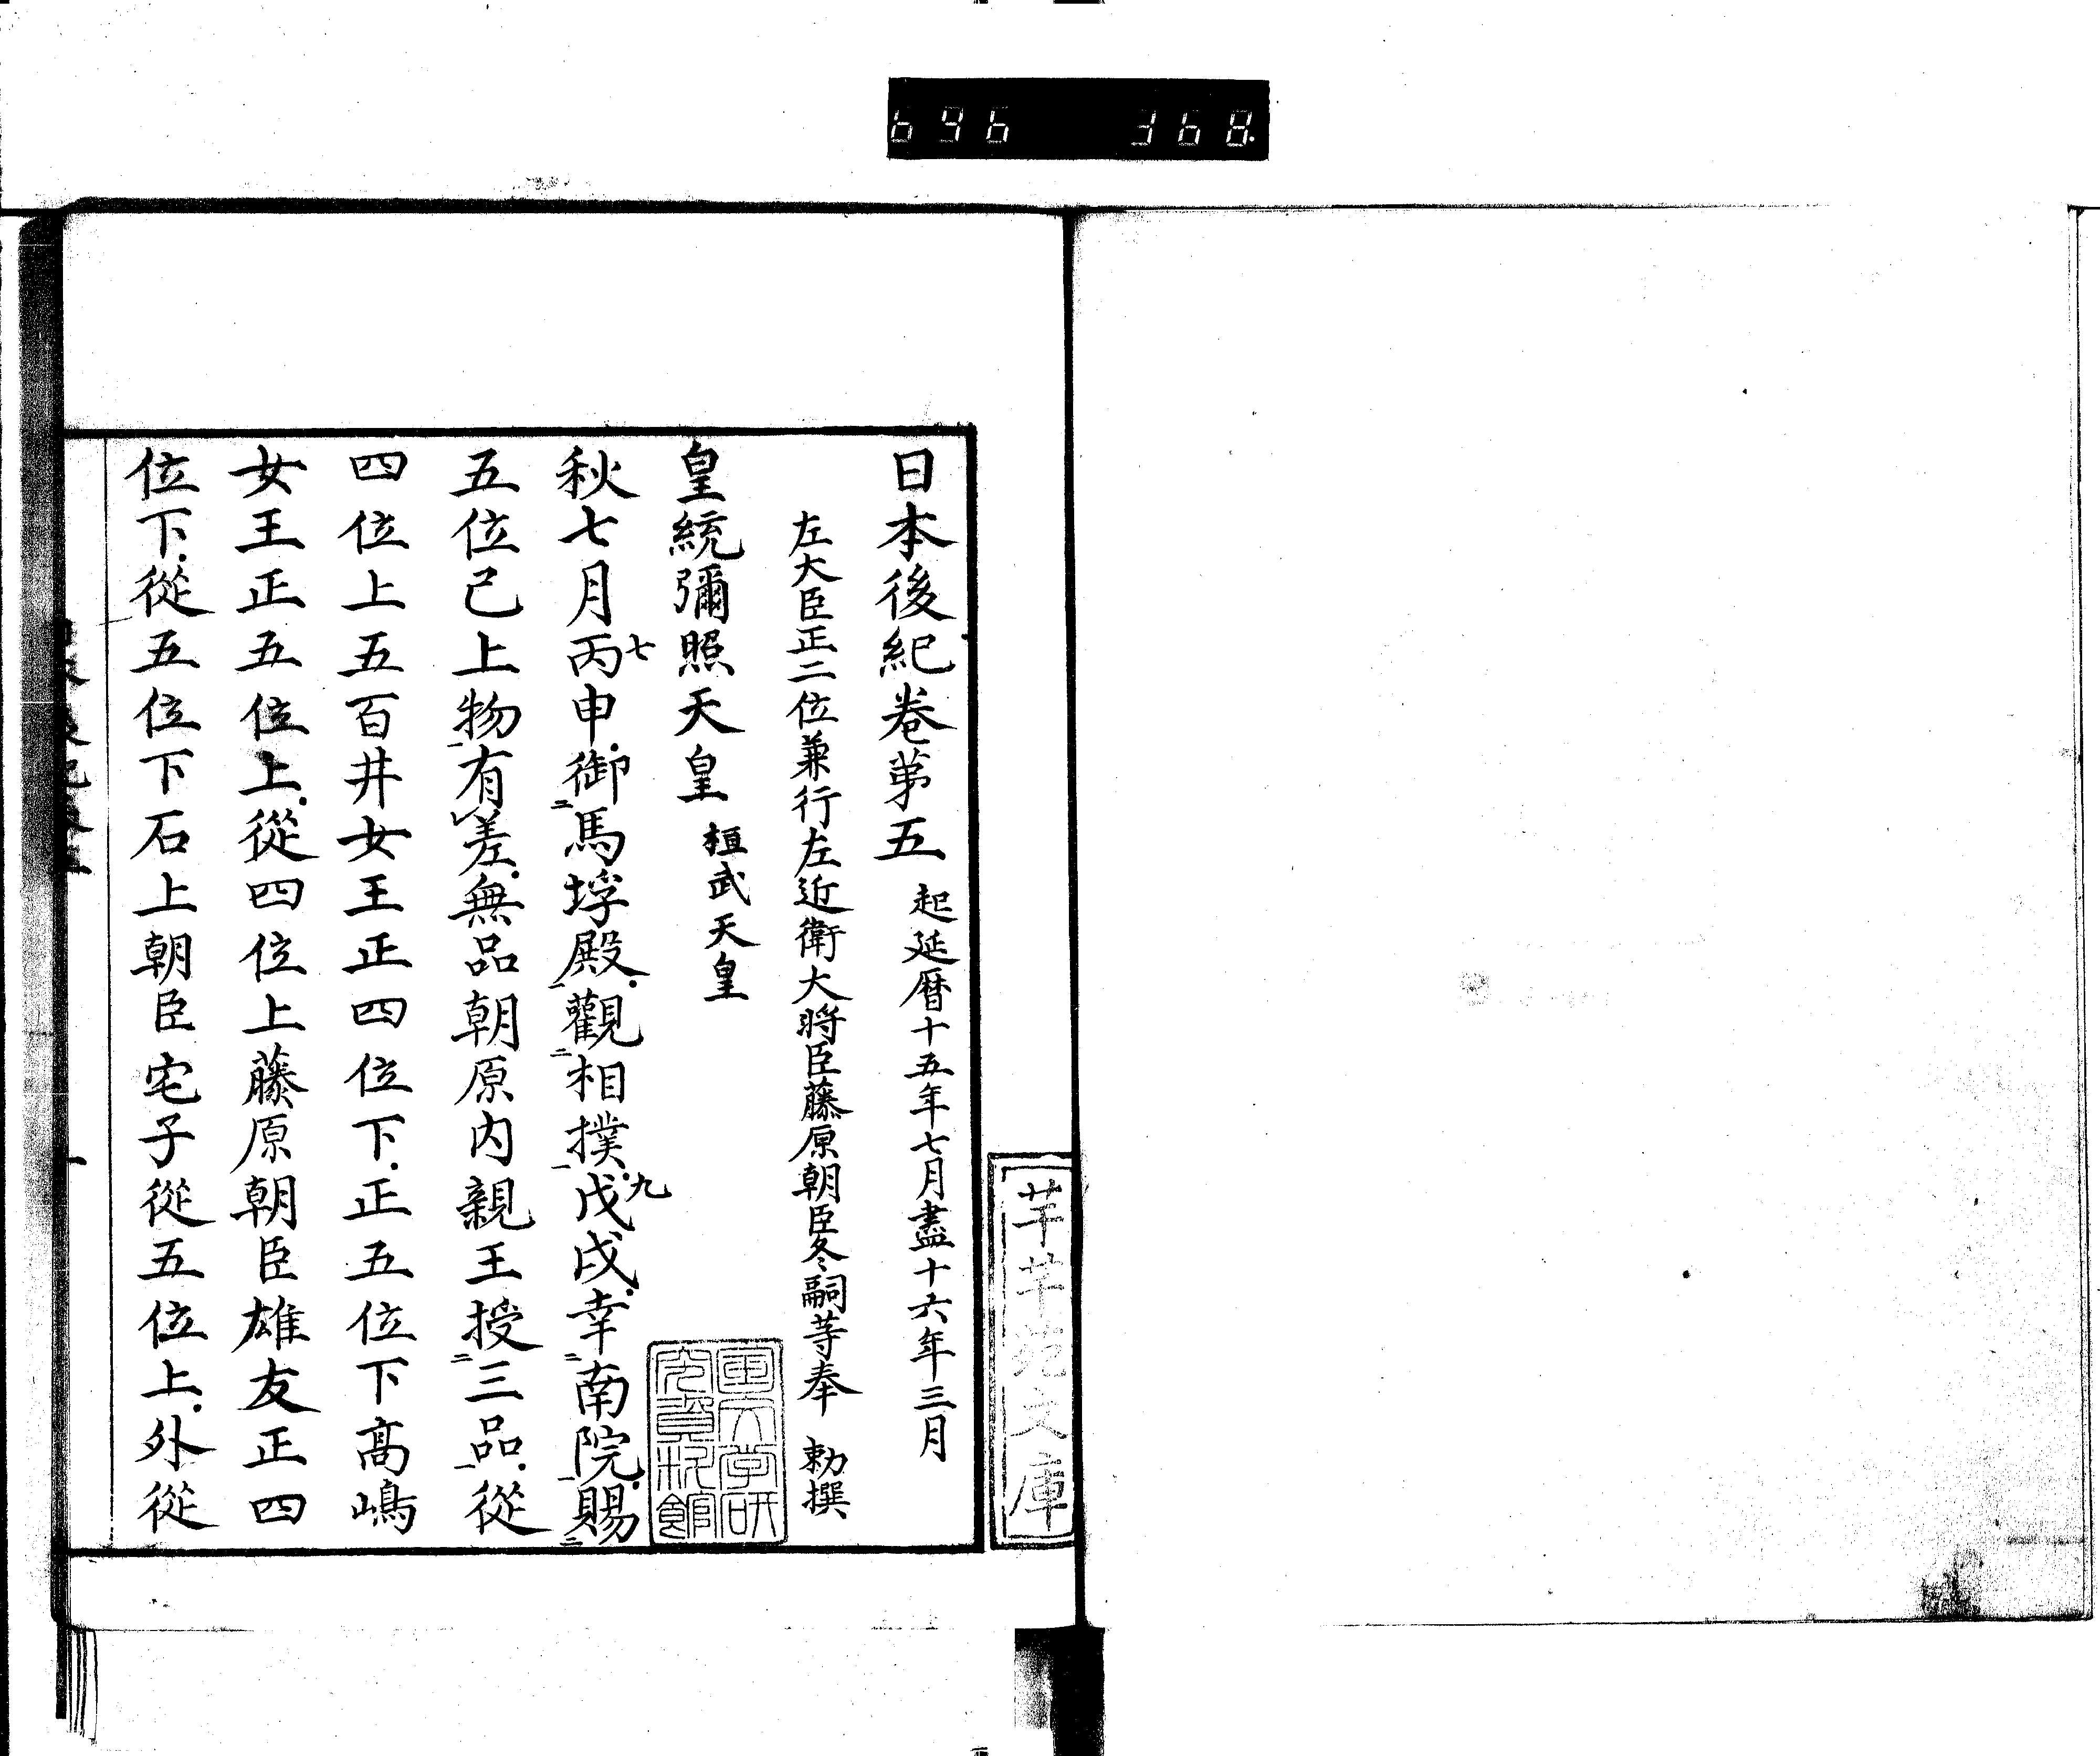 696 368
芋芋苑文庫
日本後紀卷第五 起延曆十五年七月盡十六年三月
左大臣正二位兼行左近衛大將臣藤原朝臣冬嗣等奉 勅撰
皇統彌照天皇 桓武天皇
国文学研究資料館
秋七月丙七申御二馬埓殿一觀二相撲一戊九戌幸二南院一賜二
五位己上物一有レ差無品朝原内親王授二三品一從
四位上五百井女王正四位下正五位下髙嶋
女王正五位上從四位上藤原朝臣雄友正四
位下從五位下石上朝臣宅子從五位上外從